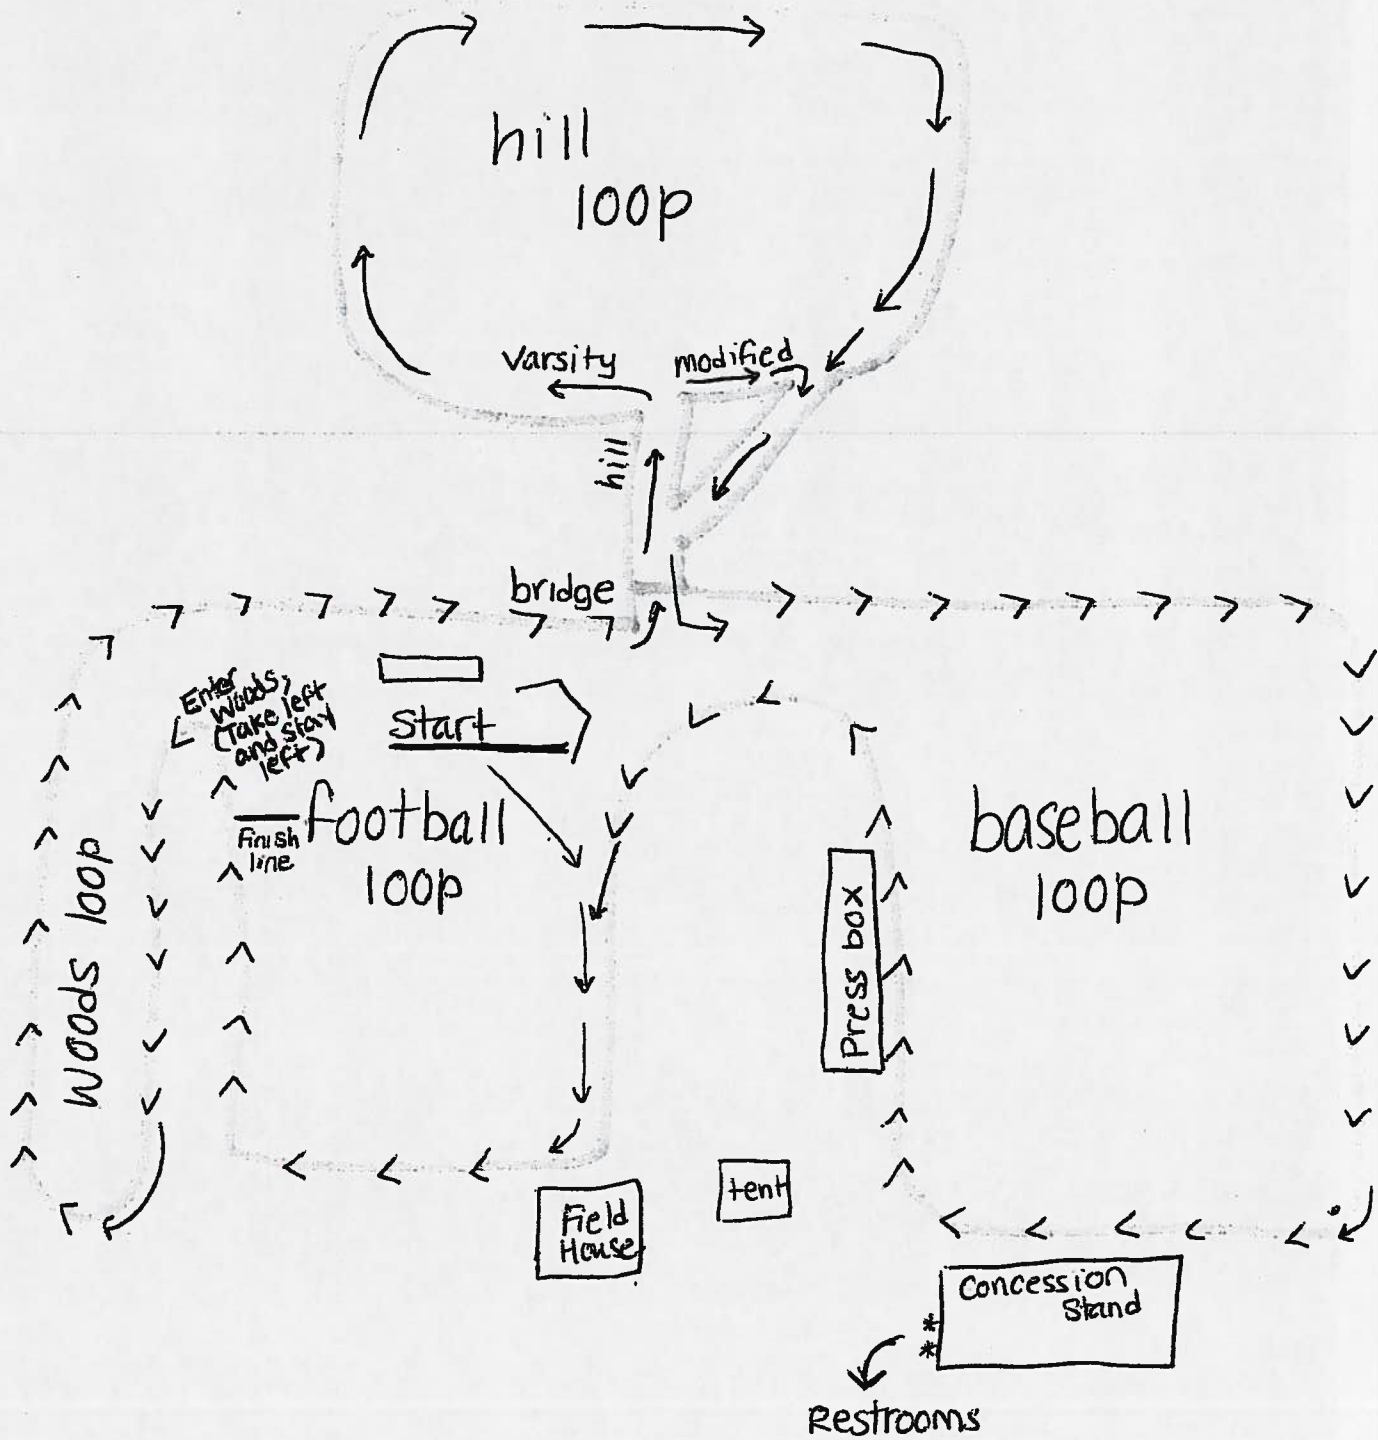 hill
loop
varsity
modified
hill
bridge
Enter
Woods,
(Take left
and stay
left)
Start
Finish
line
football
loop
baseball
loop
Woods loop
Press box
Field
House
tent
Concession
Stand
**
Restrooms